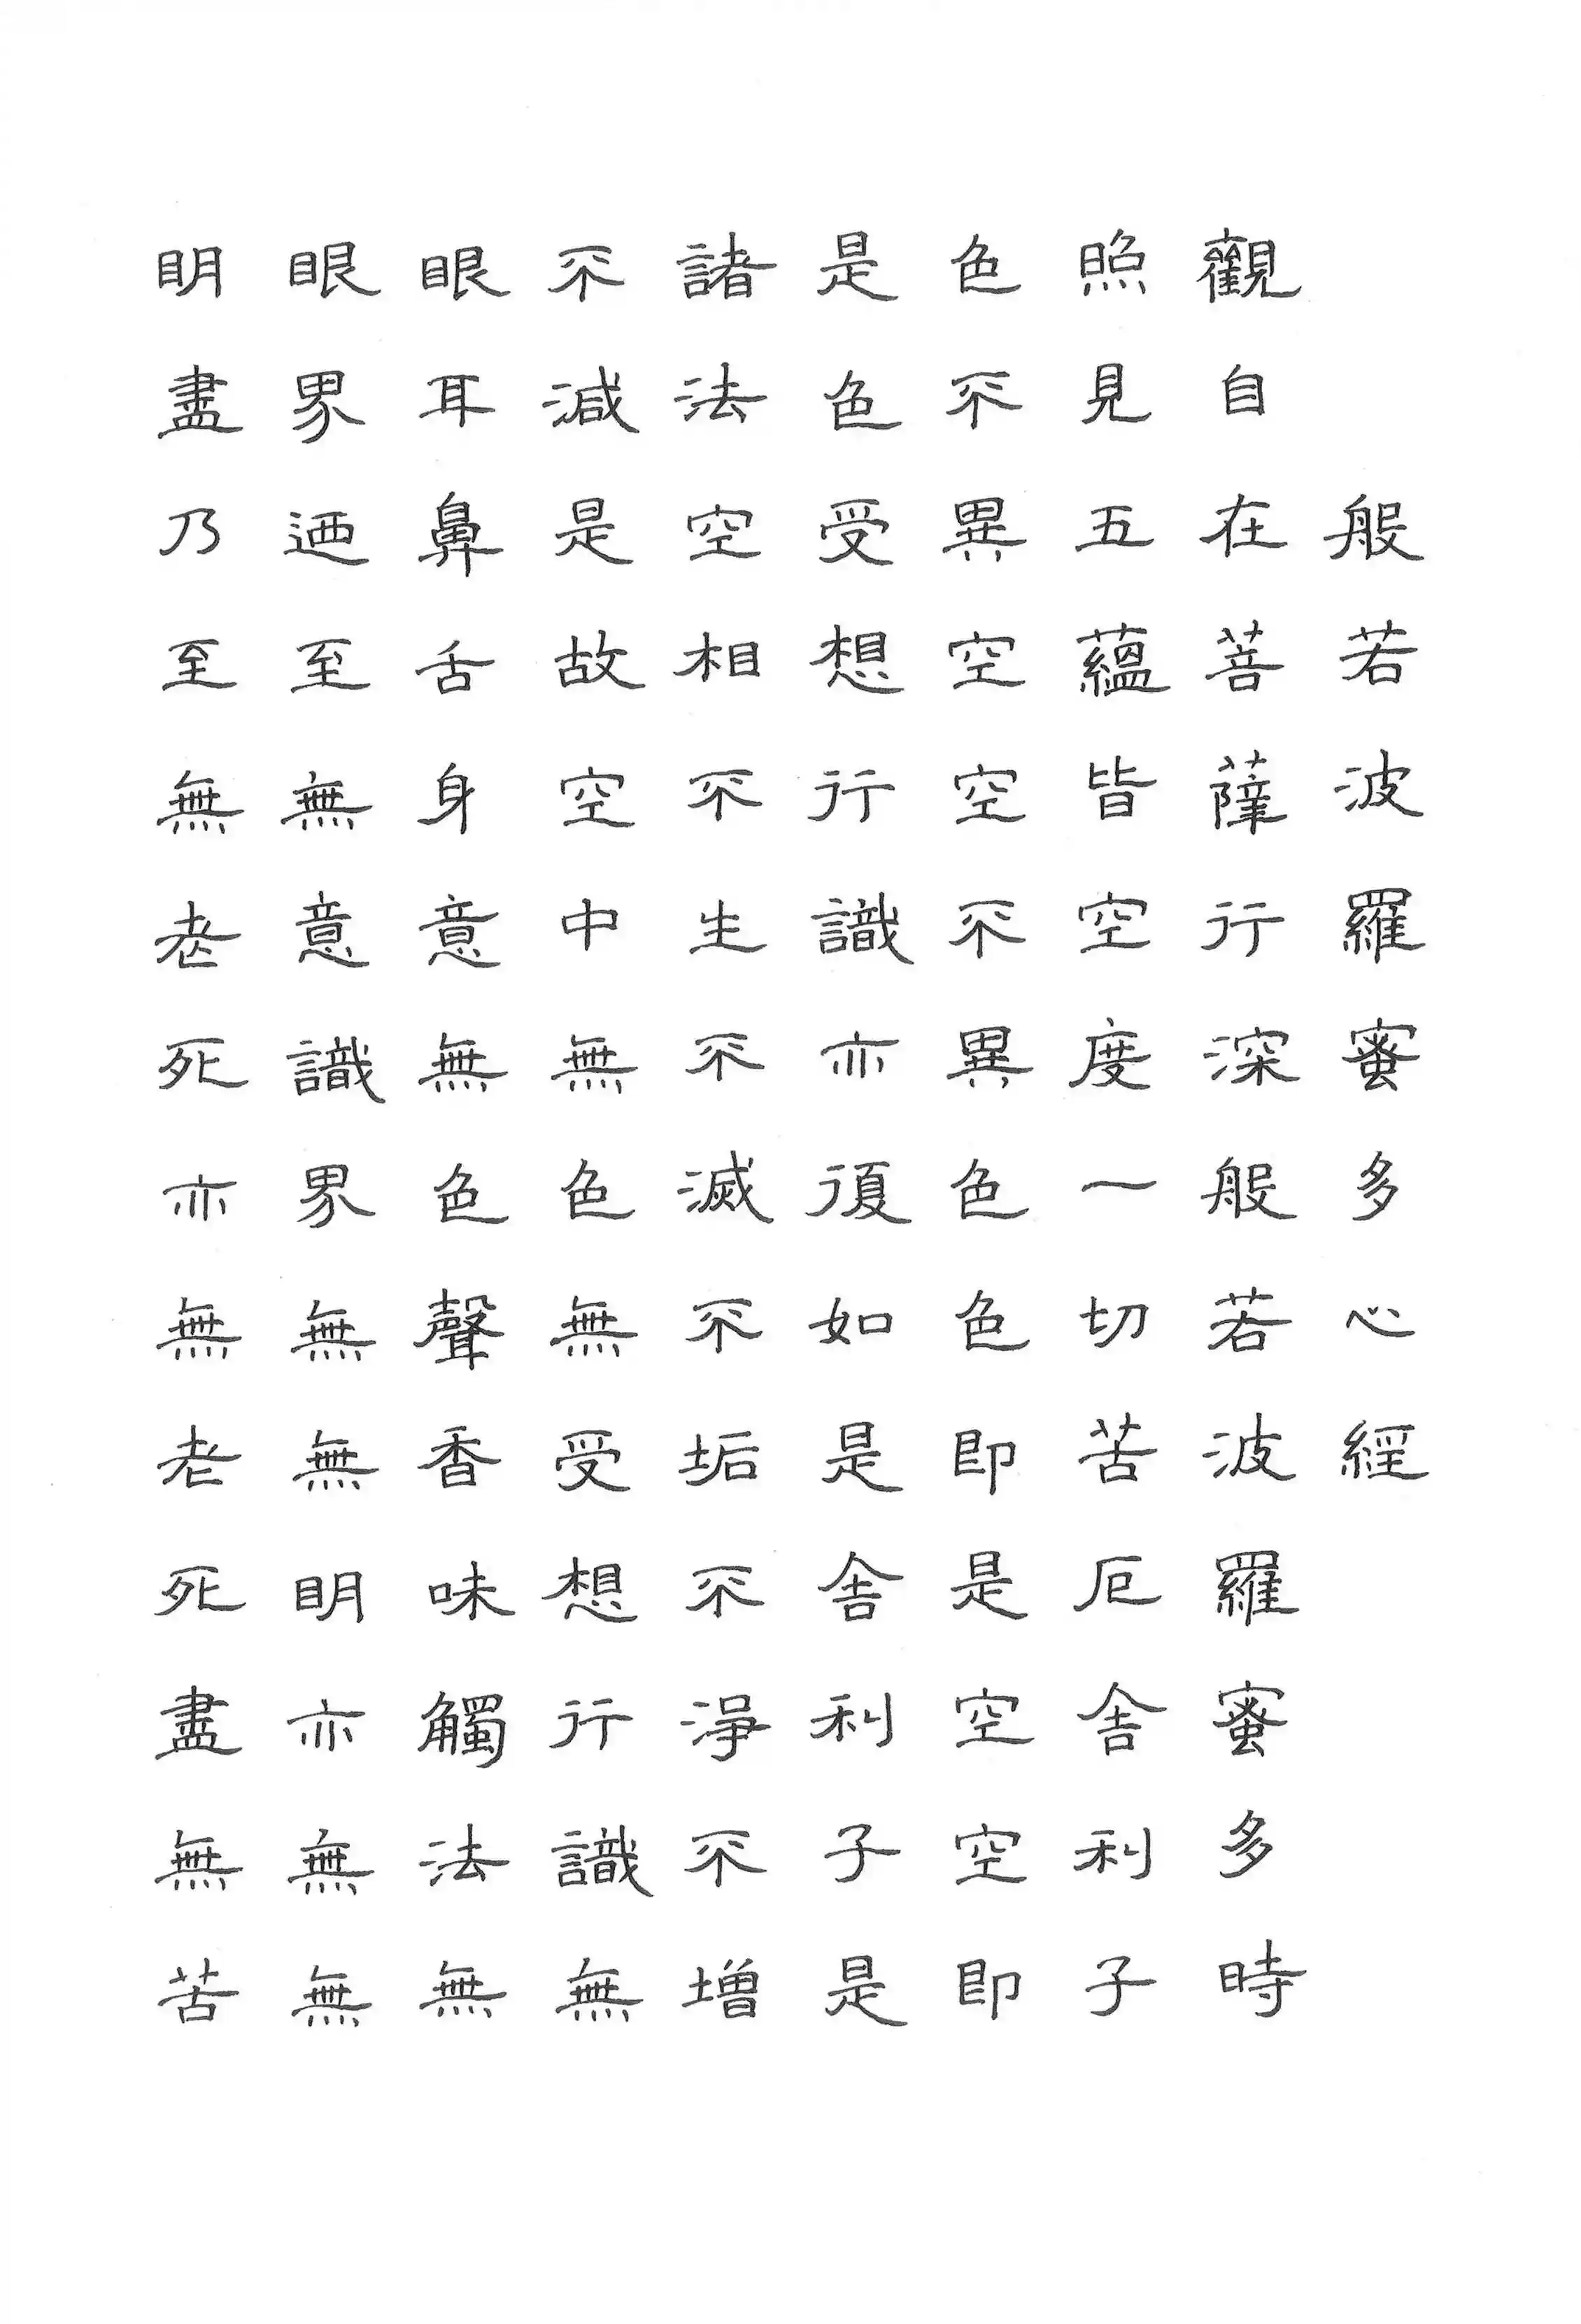 般若波羅蜜多心經
觀自在菩薩行深般若波羅蜜多時
照見五蘊皆空度一切苦厄舍利子
色不異空空不異色色即是空空即
是色受想行識亦復如是舍利子是
諸法空相不生不滅不垢不淨不增
不減是故空中無色無受想行識無
眼耳鼻舌身意無色聲香味觸法無
眼界迺至無意識界無無明亦無無
明盡乃至無老死亦無老死盡無苦